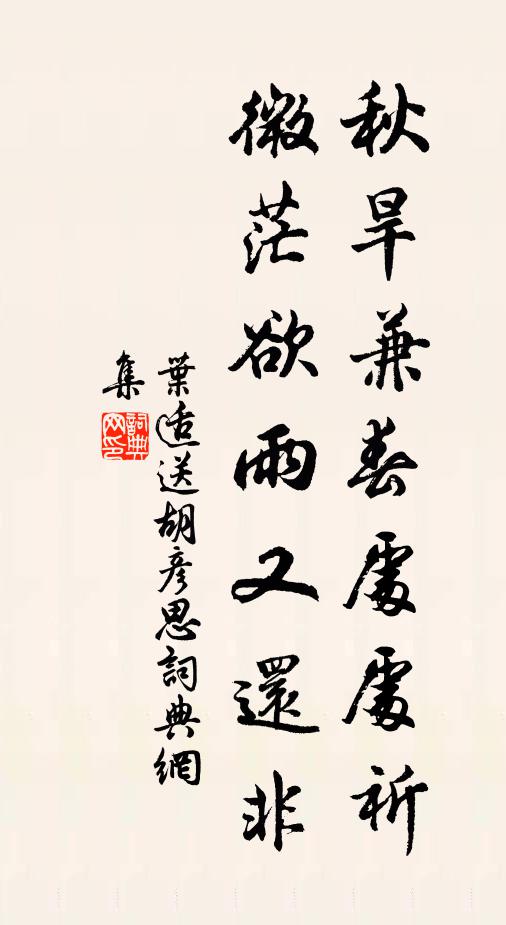 秋旱兼春處處祈
微茫欲雨又還非
葉適送胡彥思詞典網
集
詞典
网印